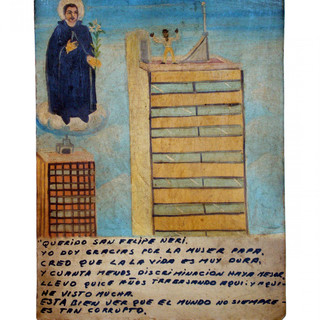 "QUERIDO SAN FELIPE NERI,
YO DOY GRACIAS POR LA MUJER PAPA,
CREO QUE LA LA VIDA ES MUY DURA,
Y CUANTA MENOS DISCRIMINACION HAYA MEJOR,
LLEVO QUICE AÑOS TRABAJANDO AQUI; Y AQUI
HE VISTO MUCHA.
ESTA BIEN VER QUE EL MUNDO NO SIEMPRE-
ES TAN CORRUPTO,